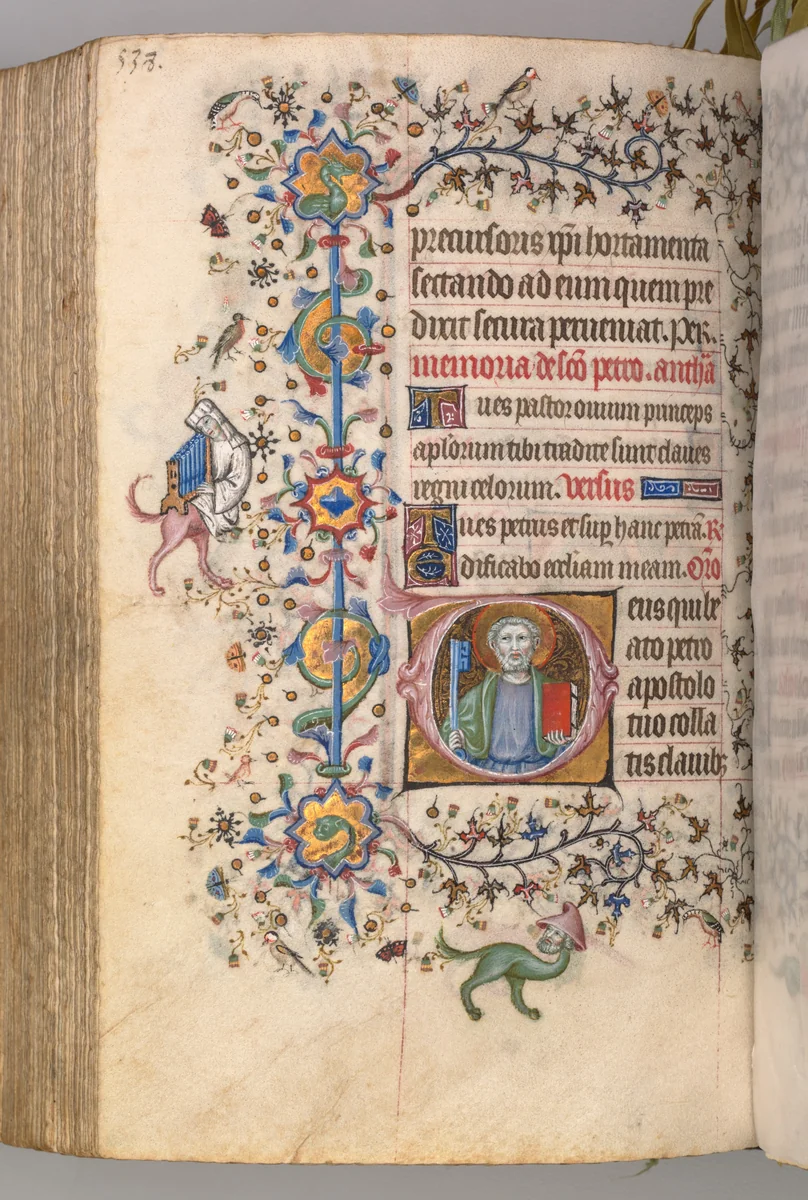 538.
precursoris xp̄i hortamenta
sectando ad eum quem pre
dixit secura perueniat. Per.
memoria de sc̄o petro. anth̄a
Tu es pastor ouium princeps
apl̄orum tibi tradite sunt claues
regni celorum. Versus
Tu es petrus et sup̱ hanc petrā. R
Edificabo eccl̄iam meam. Or̄o
Deus qui be
ato petro
apostolo
tuo colla
tis clauibꝫ